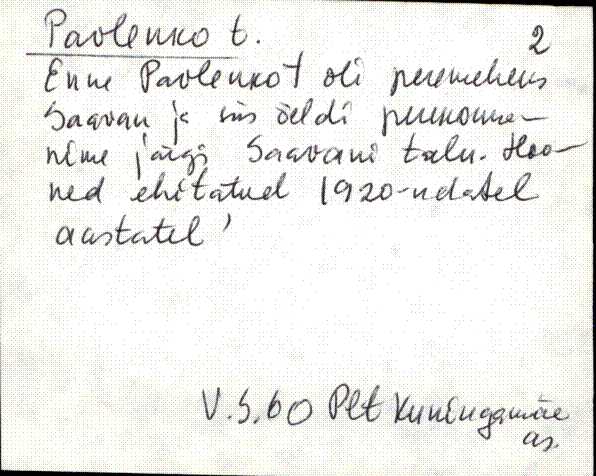 Pavlenko t.
2
Enne Pavlenkot oli peremeheks
Saavan ja siis öeldi perekonna-
nime järgi Saavani talu. Hoo-
ned ehitatud 1920-ndatel
aastatel
V.S.60 Plt Kuningamäe
as.